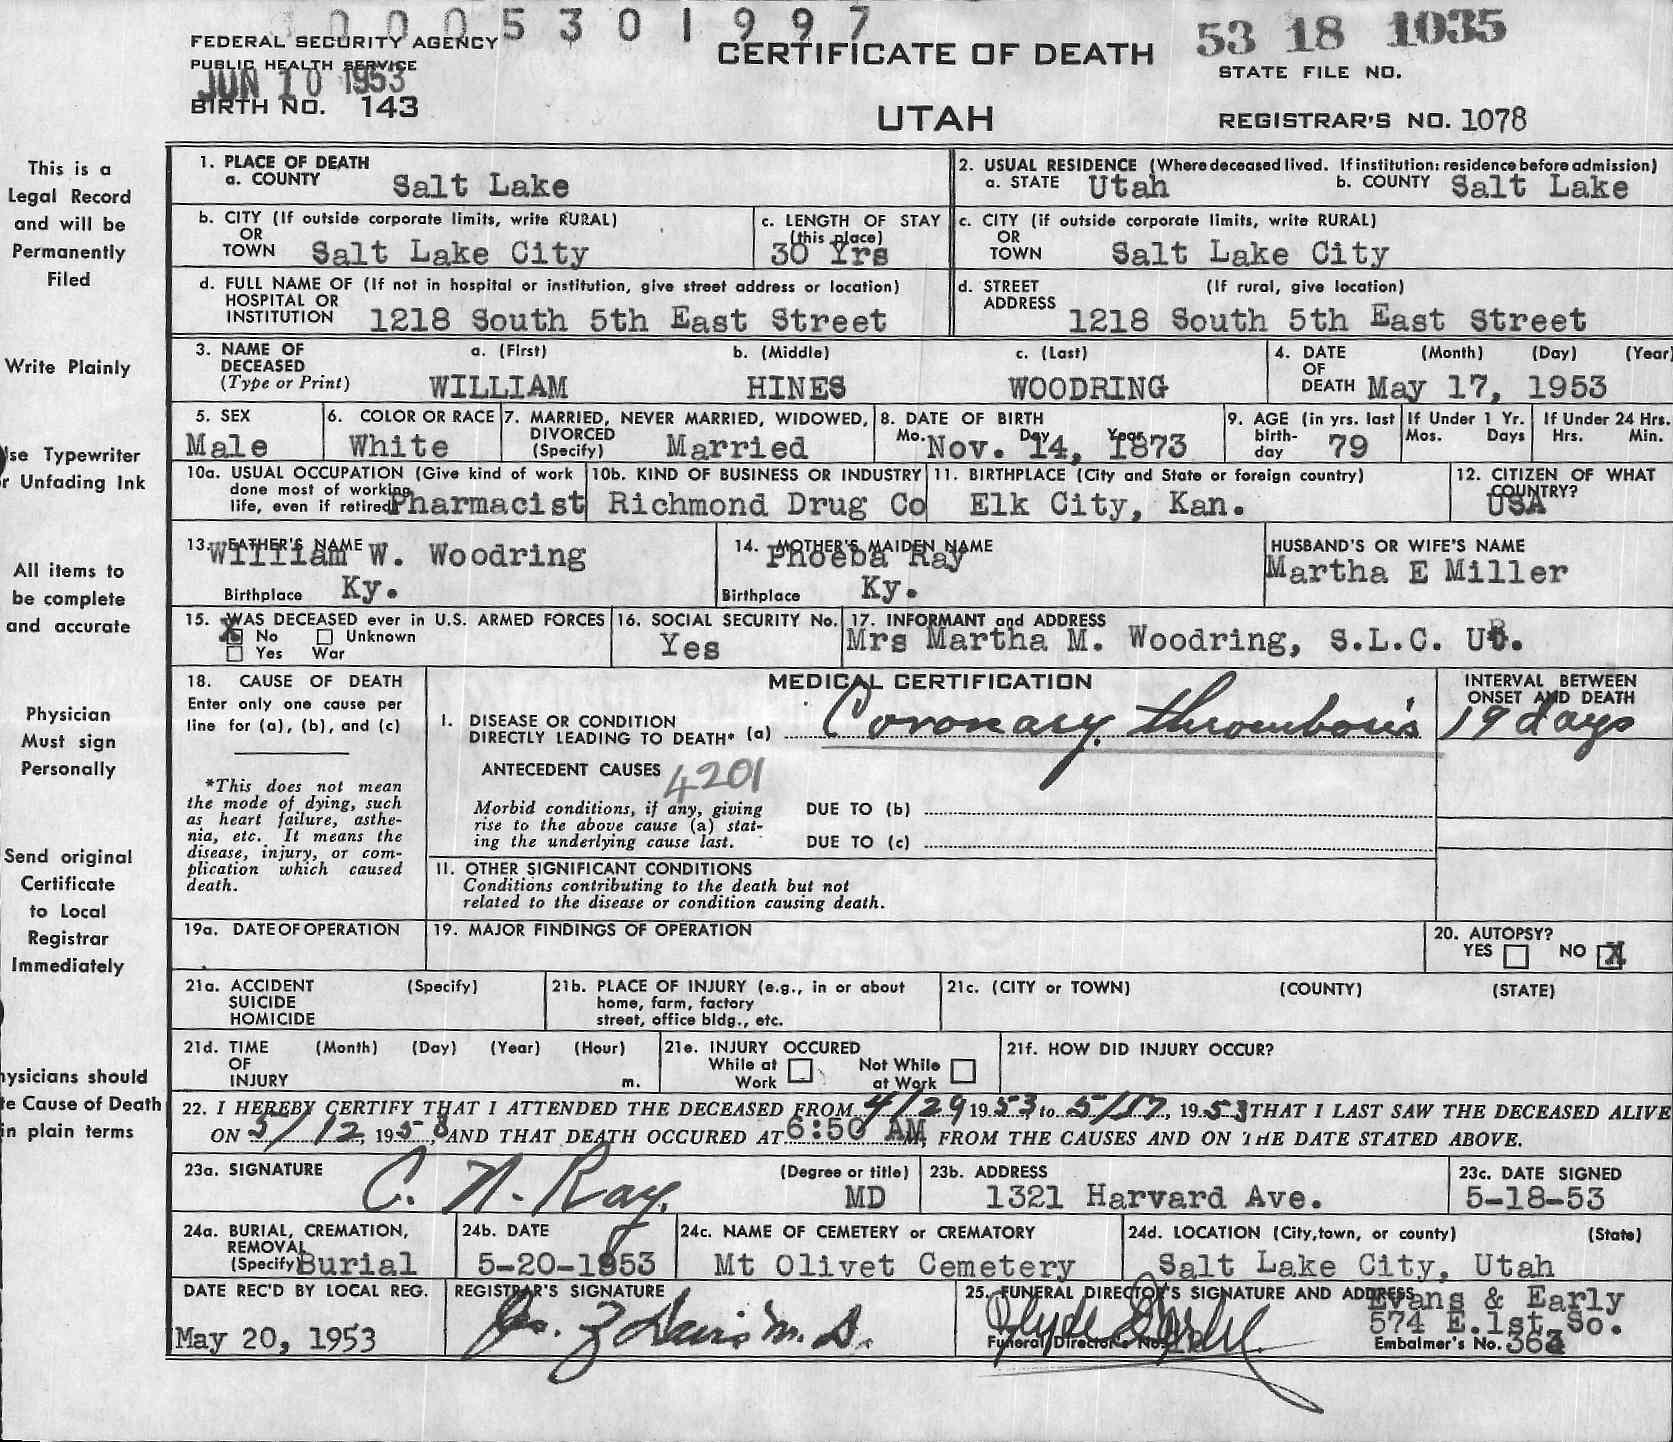 0005301997
FEDERAL SECURITY AGENCY
PUBLIC HEALTH SERVICE
JUN 10 1953
BIRTH NO. 143
CERTIFICATE OF DEATH
UTAH
53 18 1035
STATE FILE NO.
REGISTRAR'S NO. 1078
This is a
Legal Record
and will be
Permanently
Filed
Write Plainly
Use Typewriter
or Unfading Ink
All items to
be complete
and accurate
Physician
Must sign
Personally
Send original
Certificate
to Local
Registrar
Immediately
hysicians should
te Cause of Death
in plain terms
1. PLACE OF DEATH
a. COUNTY Salt Lake
2. USUAL RESIDENCE (Where deceased lived. If institution: residence before admission)
a. STATE Utah b. COUNTY Salt Lake
b. CITY (If outside corporate limits, write RURAL)
OR
TOWN Salt Lake City
c. LENGTH OF STAY
(this place)
30 Yrs
c. CITY (if outside corporate limits, write RURAL)
OR
TOWN Salt Lake City
d. FULL NAME OF (If not in hospital or institution, give street address or location)
HOSPITAL OR
INSTITUTION 1218 South 5th East Street
d. STREET (If rural, give location)
ADDRESS
1218 South 5th East Street
3. NAME OF a. (First) b. (Middle) c. (Last)
DECEASED
(Type or Print) WILLIAM HINES WOODRING
4. DATE (Month) (Day) (Year)
OF
DEATH May 17, 1953
5. SEX
Male
6. COLOR OR RACE
White
7. MARRIED, NEVER MARRIED, WIDOWED,
DIVORCED
(Specify) Married
8. DATE OF BIRTH
Mo. Day Year
Nov. 14, 1873
9. AGE (in yrs. last
birth-
day 79
If Under 1 Yr.
Mos. Days
If Under 24 Hrs.
Hrs. Min.
10a. USUAL OCCUPATION (Give kind of work
done most of working
life, even if retired) Pharmacist
10b. KIND OF BUSINESS OR INDUSTRY
Richmond Drug Co
11. BIRTHPLACE (City and State or foreign country)
Elk City, Kan.
12. CITIZEN OF WHAT
COUNTRY?
USA
13. FATHER'S NAME
William W. Woodring
Birthplace Ky.
14. MOTHER'S MAIDEN NAME
Phoeba Ray
Birthplace Ky.
HUSBAND'S OR WIFE'S NAME
Martha E Miller
15. WAS DECEASED ever in U.S. ARMED FORCES
X No Unknown
Yes War
16. SOCIAL SECURITY No.
Yes
17. INFORMANT and ADDRESS
Mrs Martha M. Woodring, S.L.C.
18. CAUSE OF DEATH
Enter only one cause per
line for (a), (b), and (c)
*This does not mean
the mode of dying, such
as heart failure, asthe-
nia, etc. It means the
disease, injury, or com-
plication which caused
death.
MEDICAL CERTIFICATION
I. DISEASE OR CONDITION
DIRECTLY LEADING TO DEATH* (a) Coronary thrombosis
INTERVAL BETWEEN
ONSET AND DEATH
19 days
ANTECEDENT CAUSES 4201
Morbid conditions, if any, giving
rise to the above cause (a) stat-
ing the underlying cause last.
DUE TO (b)
DUE TO (c)
II. OTHER SIGNIFICANT CONDITIONS
Conditions contributing to the death but not
related to the disease or condition causing death.
19a. DATE OF OPERATION
19. MAJOR FINDINGS OF OPERATION
20. AUTOPSY?
YES NO X
21a. ACCIDENT (Specify)
SUICIDE
HOMICIDE
21b. PLACE OF INJURY (e.g., in or about
home, farm, factory
street, office bldg., etc.
21c. (CITY or TOWN) (COUNTY) (STATE)
21d. TIME (Month) (Day) (Year) (Hour)
OF
INJURY m.
21e. INJURY OCCURED
While at Not While
Work at Work
21f. HOW DID INJURY OCCUR?
22. I HEREBY CERTIFY THAT I ATTENDED THE DECEASED FROM 4/29 1953 to 5/17, 1953 THAT I LAST SAW THE DECEASED ALIVE
ON 5/12, 1953, AND THAT DEATH OCCURED AT 6:50 AM, FROM THE CAUSES AND ON THE DATE STATED ABOVE.
23a. SIGNATURE (Degree or title)
C. N. Ray, MD
23b. ADDRESS
1321 Harvard Ave.
23c. DATE SIGNED
5-18-53
24a. BURIAL, CREMATION,
REMOVAL
(Specify) Burial
24b. DATE
5-20-1953
24c. NAME OF CEMETERY or CREMATORY
Mt Olivet Cemetery
24d. LOCATION (City, town, or county) (State)
Salt Lake City, Utah
DATE REC'D BY LOCAL REG.
May 20, 1953
REGISTRAR'S SIGNATURE
Davis M.D.
25. FUNERAL DIRECTOR'S SIGNATURE AND ADDRESS
Evans & Early
574 E. 1st So.
Clyde
Funeral Director's No.
Embalmer's No.